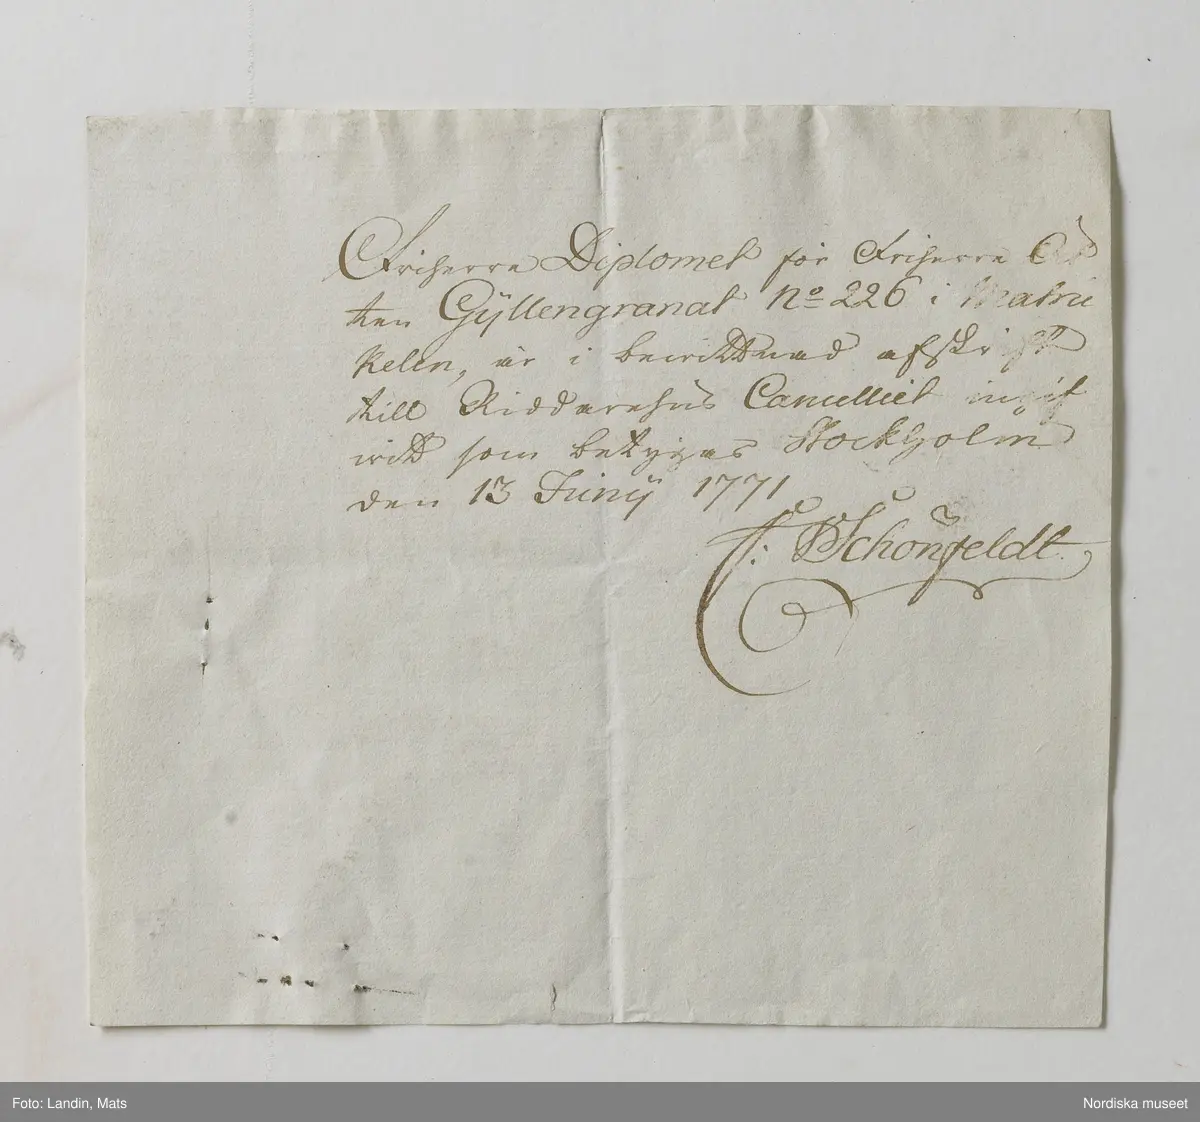 Friherre Diplomet för Friherre Ät
ten Gÿllengranat No 226 i Matri
kelen, är i bewittnad afskrift
till Riddarehus Cancelliet ingif
wit som betygas Stockholm
den 13 Junÿ 1771
Schönfeldt
Foto: Landin, Mats
Nordiska museet